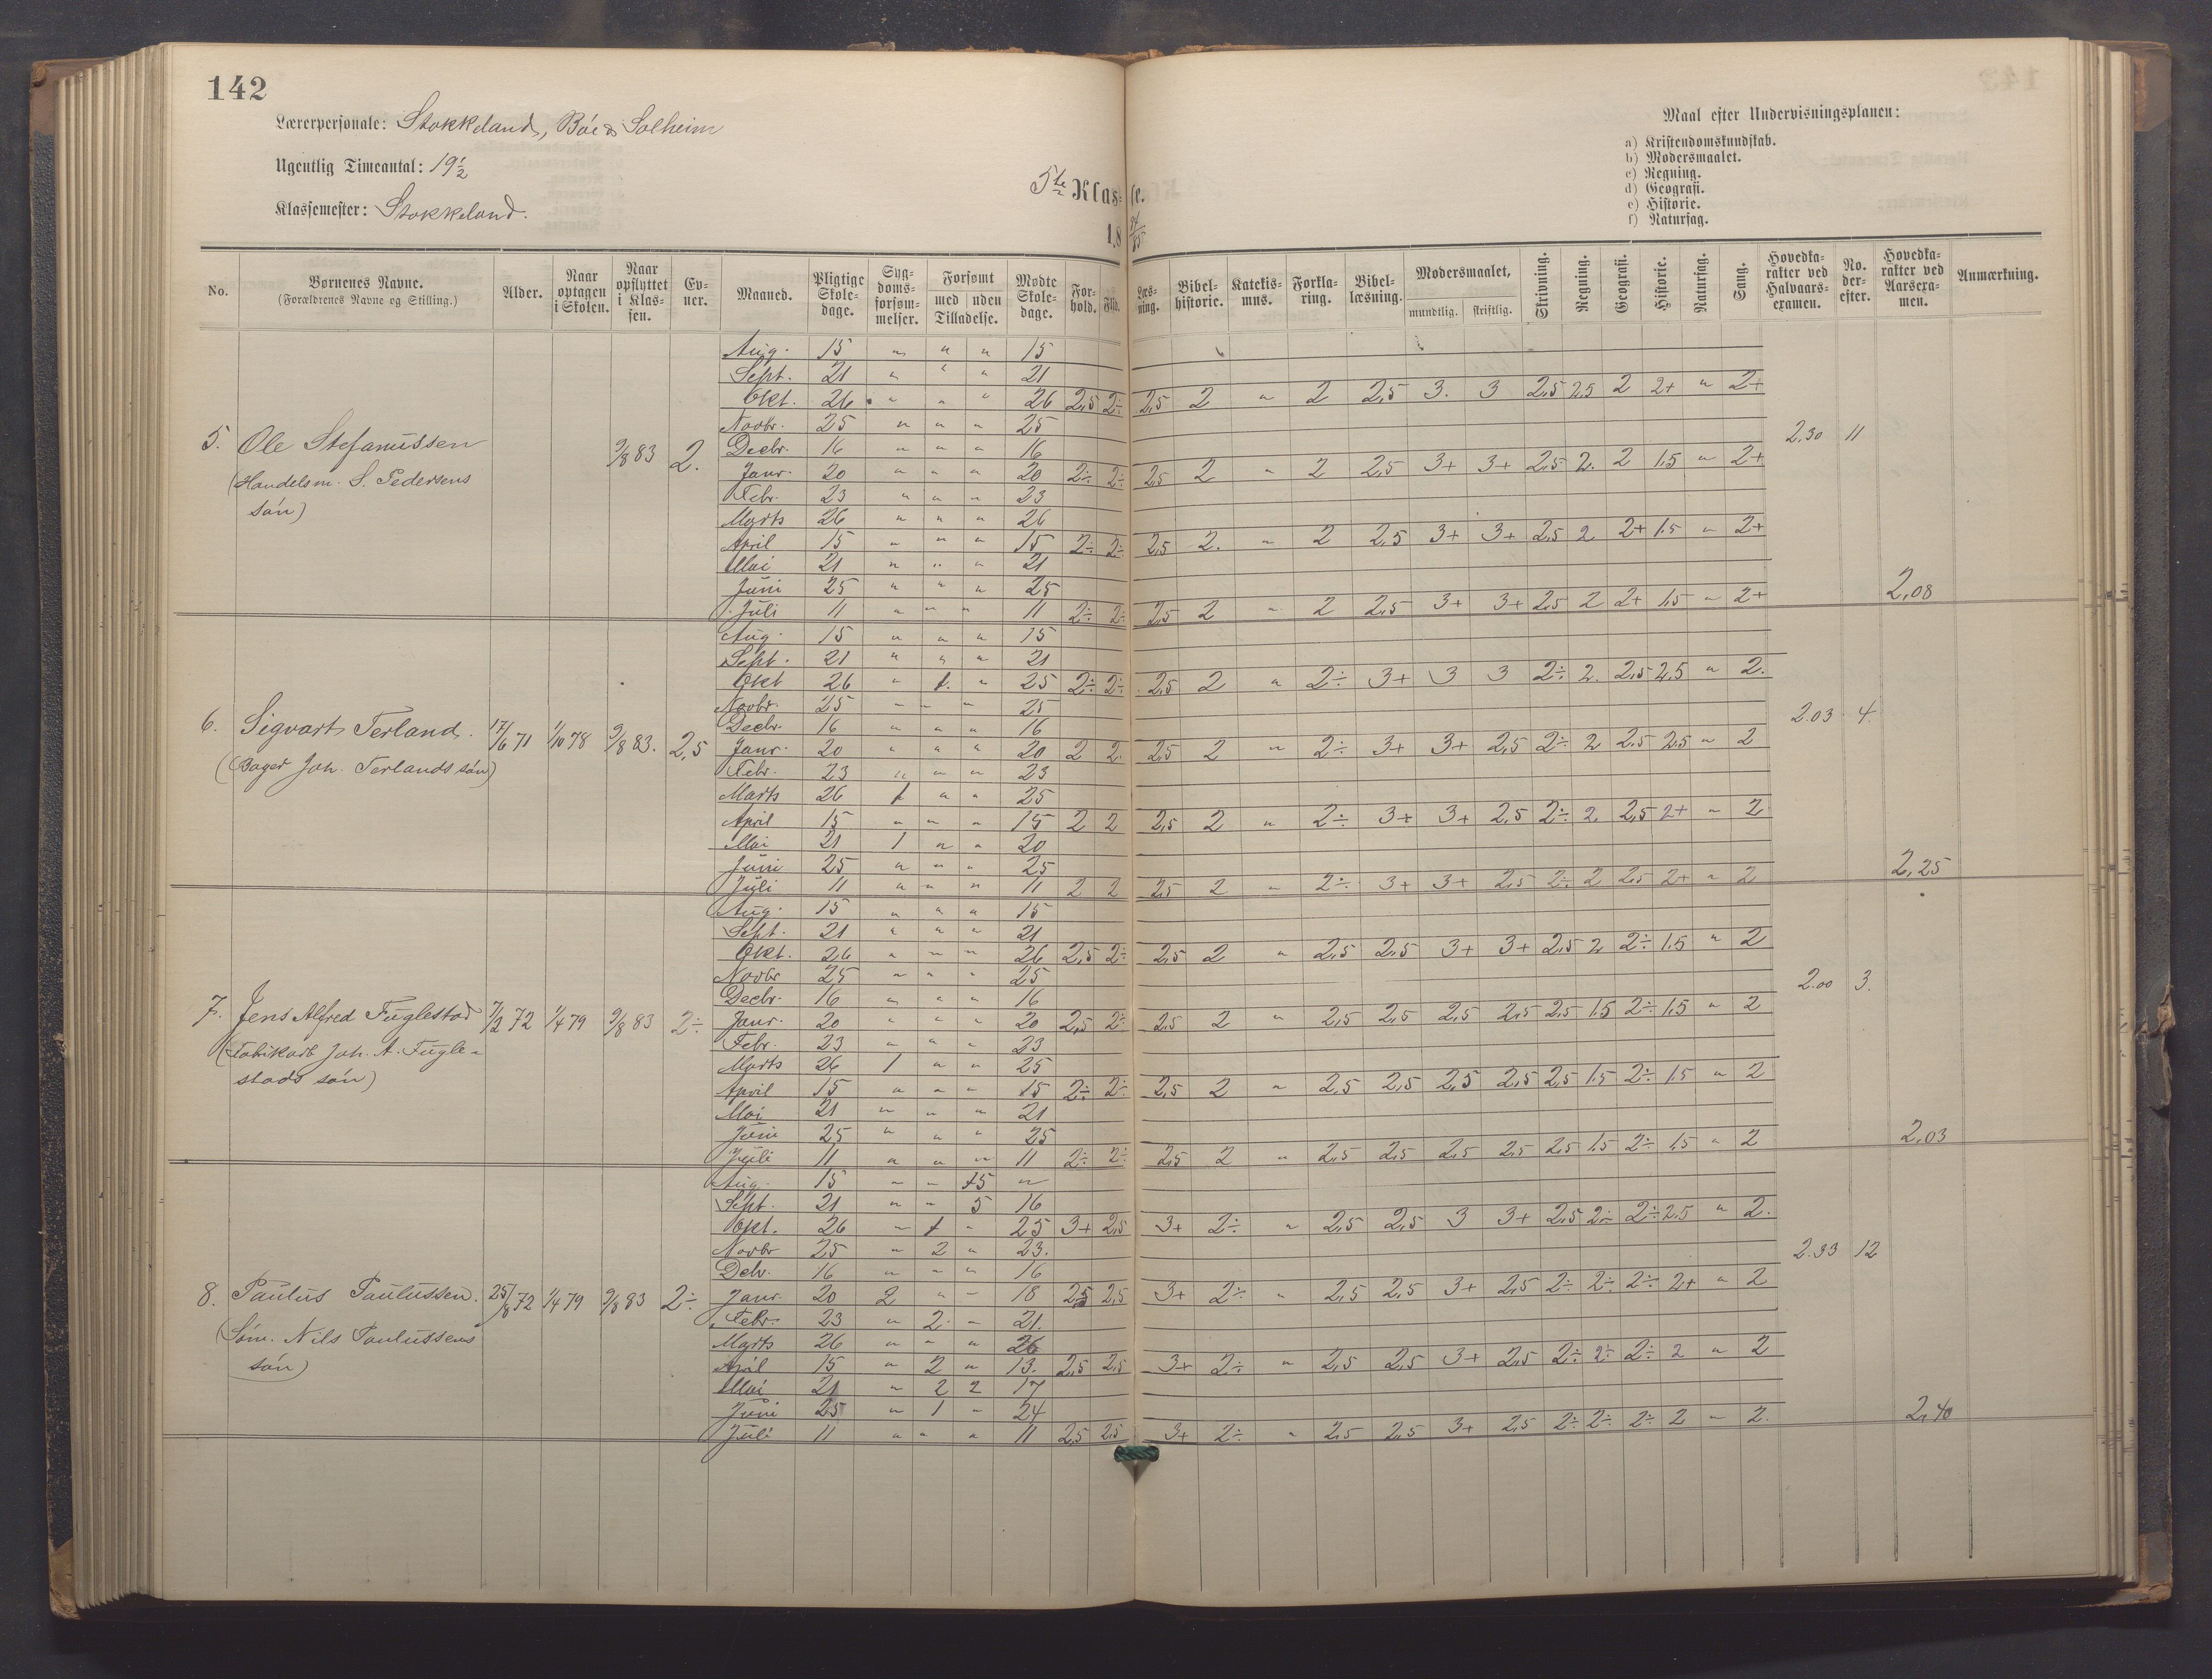 142
Lærerpersonale: Stokkeland, Bóe & Solheim
Ugentlig Timeantal: 19 1/2
Klassemester: Stokkeland.
5te Klasse.
18 84/85
Maal efter Undervisningsplanen:
a) Kristendomskundskab.
b) Modersmaalet.
c) Regning.
d) Geografi.
e) Historie.
f) Naturfag.
No. | Børnenes Navne. (Forældrenes Navne og Stilling.) | Alder. | Naar optagen i Skolen. | Naar opflyttet i Klassen. | Evner. | Maaned. | Pligtige Skoledage. | Sygdomsforsømmelser. | Forsømt med Tilladelse. | uden Tilladelse. | Mødte Skoledage. | Forhold. | Flid. | Læsning. | Bibelhistorie. | Katekismus. | Forklaring. | Bibellæsning. | Modersmaalet, mundtlig. | skriftlig. | Skrivning. | Regning. | Geografi. | Historie. | Naturfag. | Sang. | Hovedkarakter ved Halvaarsexamen. | No. derefter. | Hovedkarakter ved Aarsexamen. | Anmærkning.
5. Ole Stefanussen 9/8 83 2.
(Handelsm. S. Pedersens
søn)
Aug. 15 " " " 15
Sept. 21 " " " 21
Okt. 26 " " " 26 2,5 2÷ 2,5 2 " 2 2,5 3. 3 2,5 2,5 2 2+ " 2+
Novbr. 25 " " " 25
2.30 11
Decbr. 16 " " " 16
Janr. 20 " " " 20 2÷ 2÷ 2,5 2 " 2 2,5 3+ 3+ 2,5 2. 2 1,5 " 2+
Febr. 23 " " " 23
Marts 26 " " " 26
April 15 " " " 15 2÷ 2÷ 2,5 2. " 2 2,5 3+ 3+ 2,5 2 2+ 1,5 " 2+
Mai 21 " " " 21
Juni 25 " " " 25
Juli 11 " " " 11 2÷ 2÷ 2,5 2 " 2 2,5 3+ 3+ 2,5 2 2+ 1,5 " 2+ 2,08
6. Sigvart Terland. 17/6 71 1/10 78 9/8 83. 2,5
(Bager Joh. Terlands søn)
Aug. 15 " " " 15
Sept. 21 " " " 21
Okt 26 " 1. " 25 2÷ 2÷ 2,5 2 " 2÷ 3+ 3 3 2÷ 2. 2,5 2,5 " 2.
Novbr. 25 " " " 25
2.03 4.
Decbr. 16 " " " 16
Janr. 20 " " " 20 2 2. 2,5 2 " 2÷ 3+ 3+ 2,5 2÷ 2 2,5 2,5 " 2
Febr. 23 " " " 23
Marts 26 1 " " 25
April 15 " " " 15 2 2 2,5 2 " 2÷ 3+ 3+ 2,5 2÷ 2 2,5 2+ " 2
Mai 21 1 " " 20
Juni 25 " " " 25
Juli 11 " " " 11 2 2 2,5 2 " 2÷ 3+ 3+ 2,5 2÷ 2 2,5 2+ " 2 2,25
7. Jens Alfred Fuglestad 7/2 72 1/4 79 9/8 83 2÷
(Fabrikarb Joh. A. Fugle-
stads søn)
Aug. 15 " " " 15
Sept. 21 " " " 21
Okt. 26 " " " 26 2,5 2÷ 2,5 2 " 2,5 2,5 3+ 3+ 2,5 2 2÷ 1,5 " 2
Novbr 25 " " " 25
2.00 3.
Decbr. 16 " " " 16
Janr. 20 " " " 20 2,5 2÷ 2,5 2 " 2,5 2,5 2,5 2,5 2,5 1,5 2÷ 1,5 " 2
Febr. 23 " " " 23
Marts 26 1 " " 25
April 15 " " " 15 2÷ 2÷ 2,5 2 " 2,5 2,5 2,5 2,5 2,5 1,5 2÷ 1,5 " 2
Mai 21 " " " 21
Juni 25 " " " 25
Juli 11 " " " 11 2÷ 2÷ 2,5 2 " 2,5 2,5 2,5 2,5 2,5 1,5 2÷ 1,5 " 2 2,03
8. Paulus Paulussen. 25/8 72 1/4 79 9/8 83 2÷
(Søm. Nils Paulussens
søn)
Aug. 15 " " 15 "
Sept. 21 " " 5 16
Okt. 26 " 1 " 25 3+ 2,5 3+ 2÷ " 2,5 2,5 3 3+ 2,5 2÷ 2÷ 2,5 " 2.
Novbr 25 " 2 " 23.
2.33 12
Debr. 16 " " " 16
Janr. 20 2 " " 18 2,5 2,5 3+ 2÷ " 2,5 2,5 3+ 2,5 2÷ 2÷ 2÷ 2+ " 2
Febr. 23 " 2 " 21.
Marts 26 " " " 26
April 15 " 2 " 13. 2,5 2,5 3+ 2÷ " 2,5 2,5 3+ 2,5 2÷ 2÷ 2÷ 2 " 2
Mai 21 " 2 2 17
Juni 25 " 1 " 24
Juli 11 " " " 11 2,5 2,5 3+ 2÷ " 2,5 2,5 3+ 2,5 2÷ 2÷ 2÷ 2 " 2. 2,40